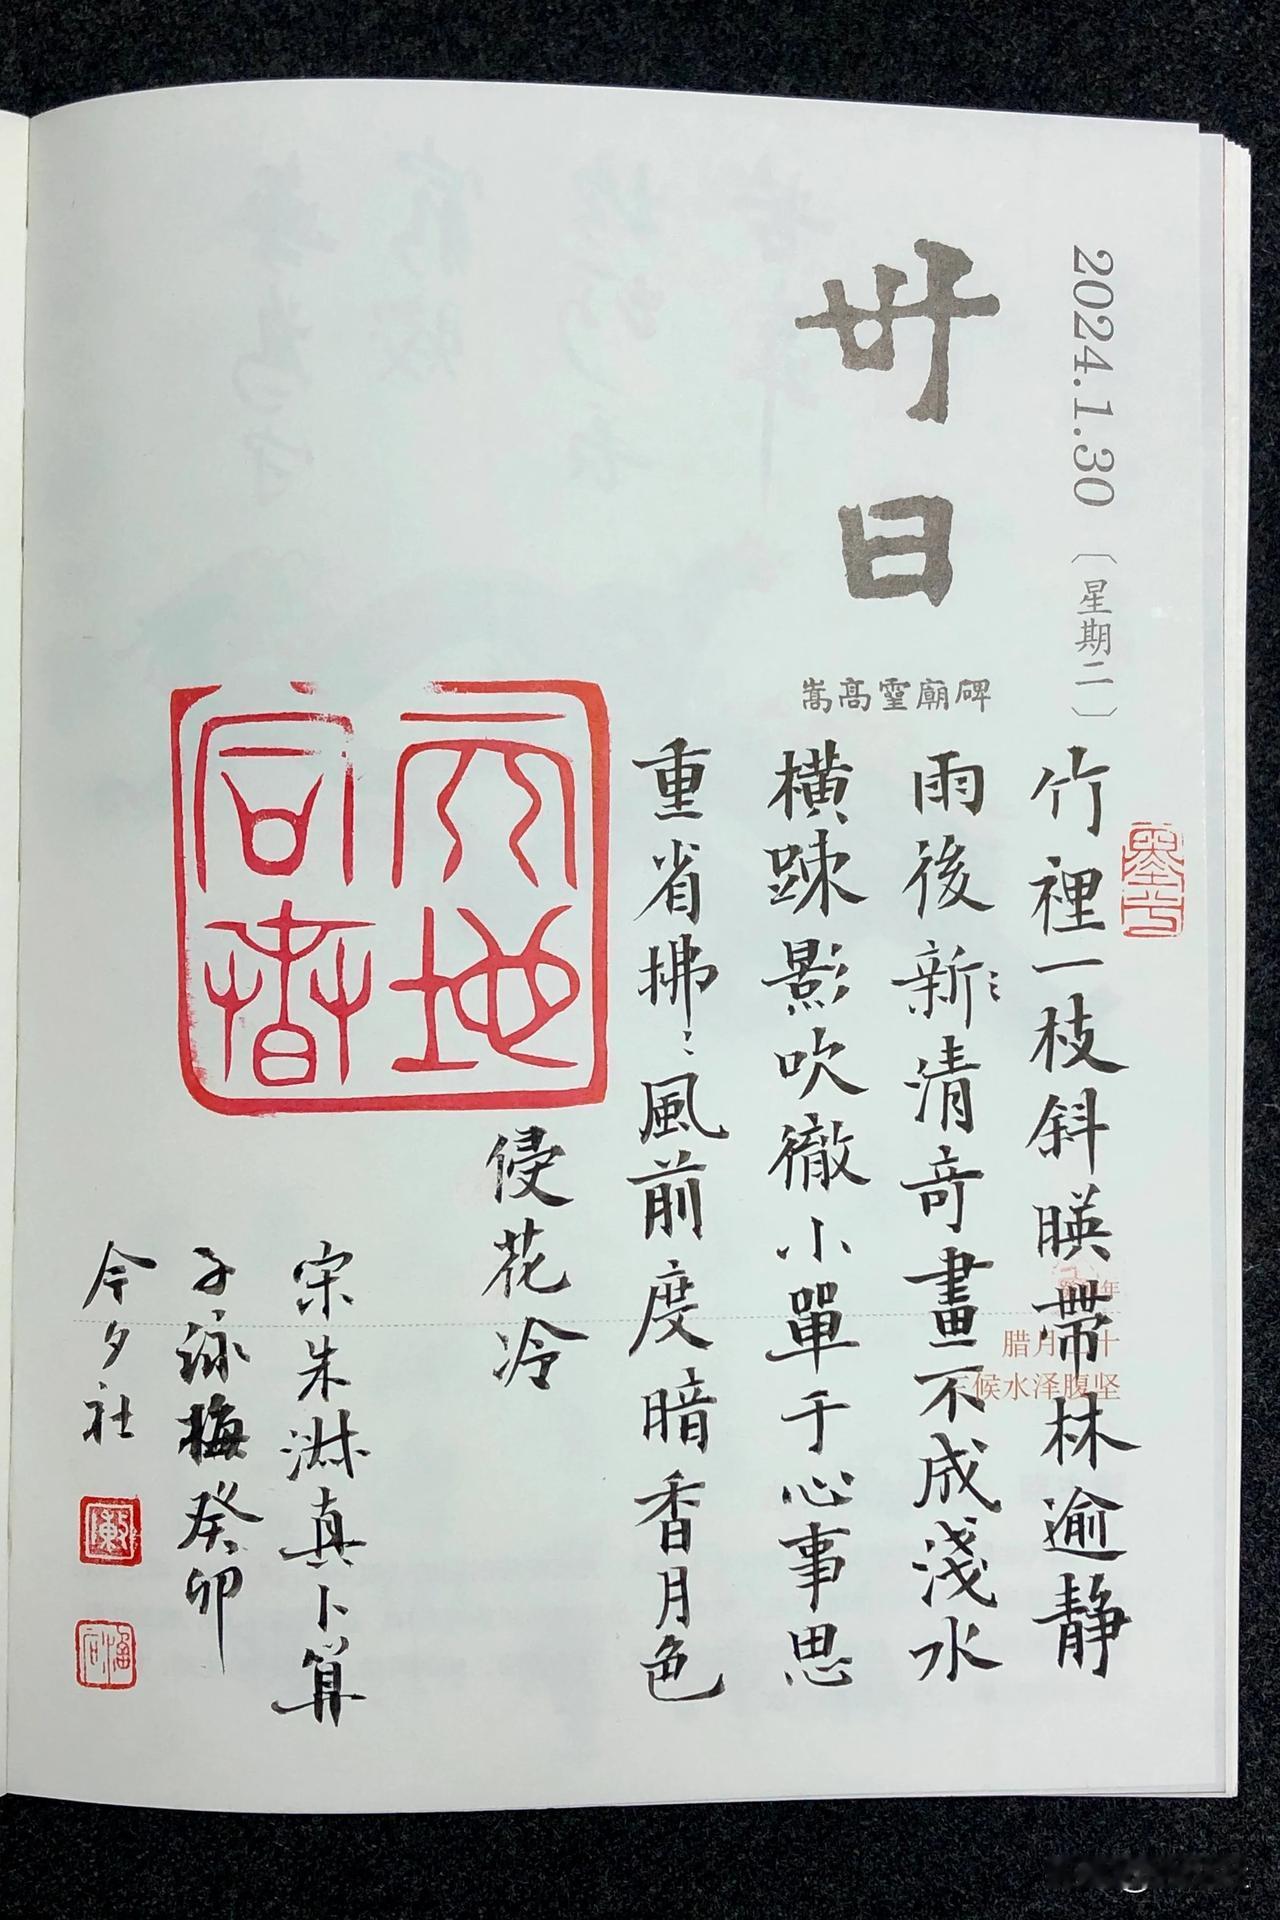 2024.1.30〔星期二〕
卅日
嵩高靈廟碑
竹裡一枝斜暎帶林逾静
雨後新〻清奇畫不成淺水
橫踈影吹徹小單于心事思
重省拂〻風前度暗香月色
侵花冷
宋朱淋真卜算
子詠梅癸卯
今夕社
天地
同春
腊月二十
候水泽腹坚